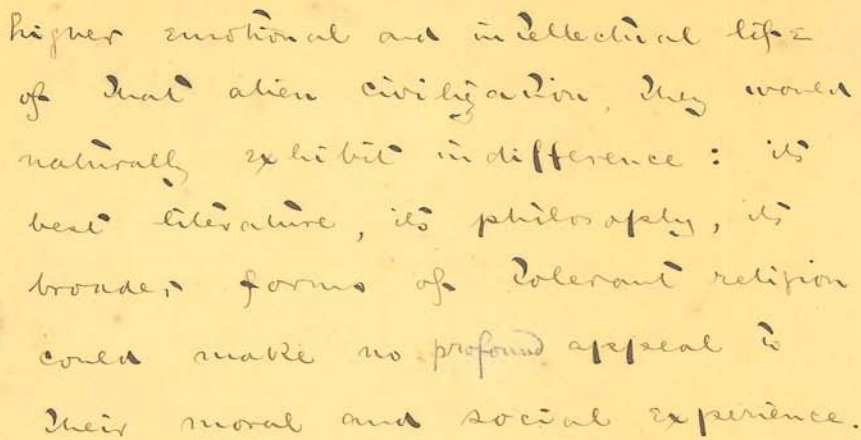 higher emotional and intellectual life
of that alien civilization, they would
naturally exhibit indifference: its
best literature, its philosophy, its
broader forms of tolerant religion
could make no profound appeal to
their moral and social experience.